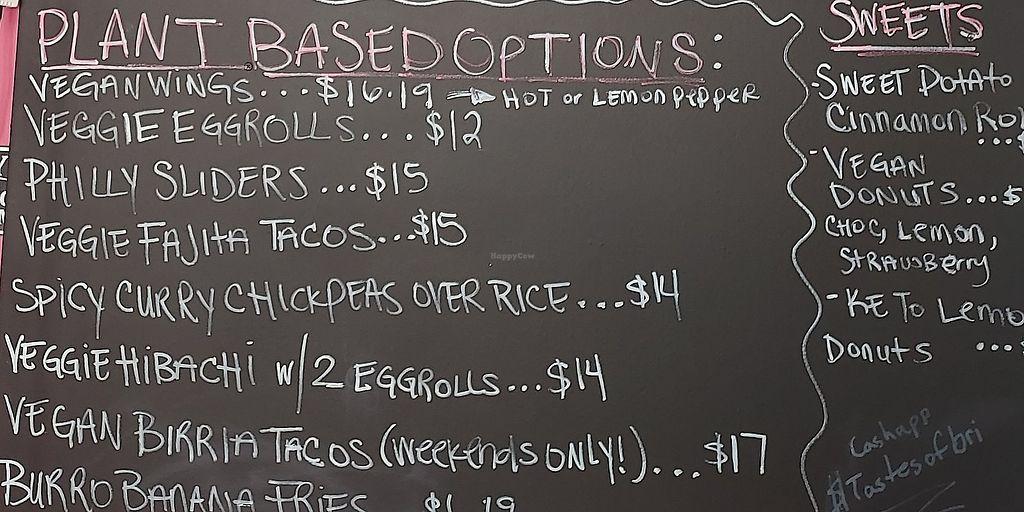 PLANT BASED OPTIONS:
VEGAN WINGS... $16.19 → HOT or LEMON PEPPER
VEGGIE EGGROLLS... $12
PHILLY SLIDERS... $15
VEGGIE FAJITA TACOS... $15
SPICY CURRY CHICKPEAS OVER RICE... $14
VEGGIE HIBACHI W/2 EGGROLLS... $14
VEGAN BIRRIA TACOS (weekends ONLY!)... $17
BURRO BANANA FRIES
SWEETS
-SWEET POTATO
Cinnamon
...$
-VEGAN
DONUTS...$
CHOC, Lemon,
STRAWBerry
-KETO
Donuts ...
Cashapp
$Tastesofbri
HappyCow